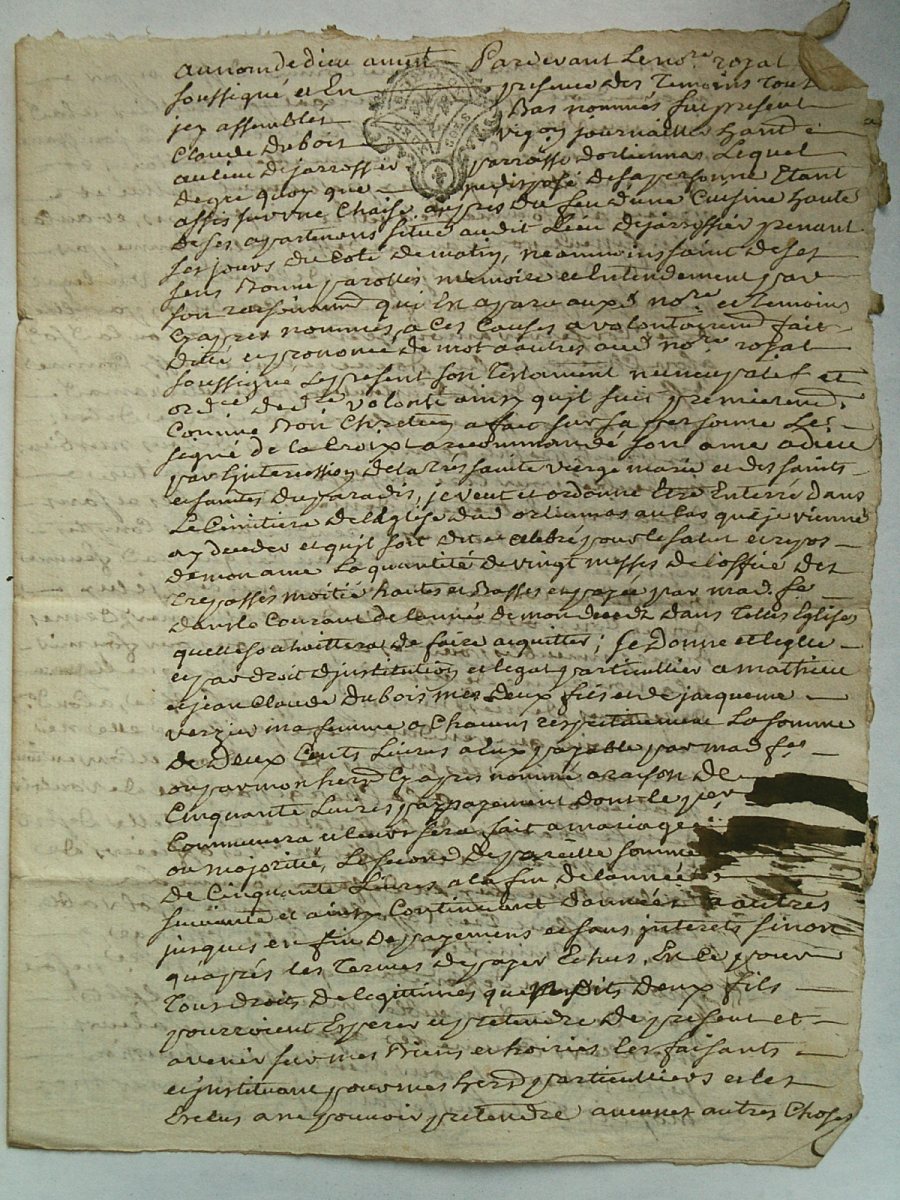 au nom de dieu amen Pardevant Le no.re royal
soussigné et En presence des Temoins Tout
jcy assemblés Bas nommés fut present
Claude Dubois vigon journaillier Habt. é
au lieu dejarrossier parroisse dorliennas Lequel
de gré quoy que indisposé desapersonne Etant
assis sur vne Chaise aupres du feu dune Cuisine haute
de ses apartemens situé audit Lieu dejarrossier prenant
ses jours du Coté de matin, neanmoins saint de ses
sens Bonne parolles memoire et Entendement par
son raisonnemd qui En aparu auxd. no.re et Temoins
Cyaprés nommés a Ces Causes a volontairemd fait
Ditte et prononcé de mot a autres aud no.re royal
soussigné Le present son Testament nuncupatif et
ord.ce de d.re volonté ainsy quil suit premieremd.
Comme Bon Chretien a fait sur sa personne Le
signe de la Croix a recommandé son ame a dieu
par Lintercession de la trés sainte vierge marie et des saints
et saintes du paradis, je veut et ordonne Etre Enterré dans
Le Cimitiere de leglise dud orliennas au Cas que je vienne
a y deceder et quil soit dit et celebré pour le salut et repos
de mon ame La quantité de vingt messes de loffice des
Trepassés moitié hautes et Basses et payée par mad. fe
dans le Courant de lannée de mon decedz Dans Telles Eglises
quelle souhaittera de faire acquitter; je Donne et legue
et par droit dinstitution et legat particullier a mathieu
et jean Claude Dubois mes Deux fils et de jacqueme
verzier ma femme a Chacuns respectivement La somme
de Deux Cents Livres a Eux payable par mad. fe
ou par mon herd Cyaprés nommé a raison de
Cinquante Livres par payement dont le per
Commencera et leur sera fait a mariage
ou majorité, Le second de pareille somme
de Cinquante Livres a la fin de lannée
suivante et ainsy Continuant dannées a autres
jusques en fin de payemens et sans interets sinon
quaprés les Termes de payer Echus, Et Ce pour
Tous droits de legittimes que mesdits Deux fils
pourroient Esperer et pretendre De present et
avenir sur mes Biens et hoiries les faisants
et jnstituant pour mes herd particulliers et les
Exclus a ne pouvoir pretendre aucunes autres Choses